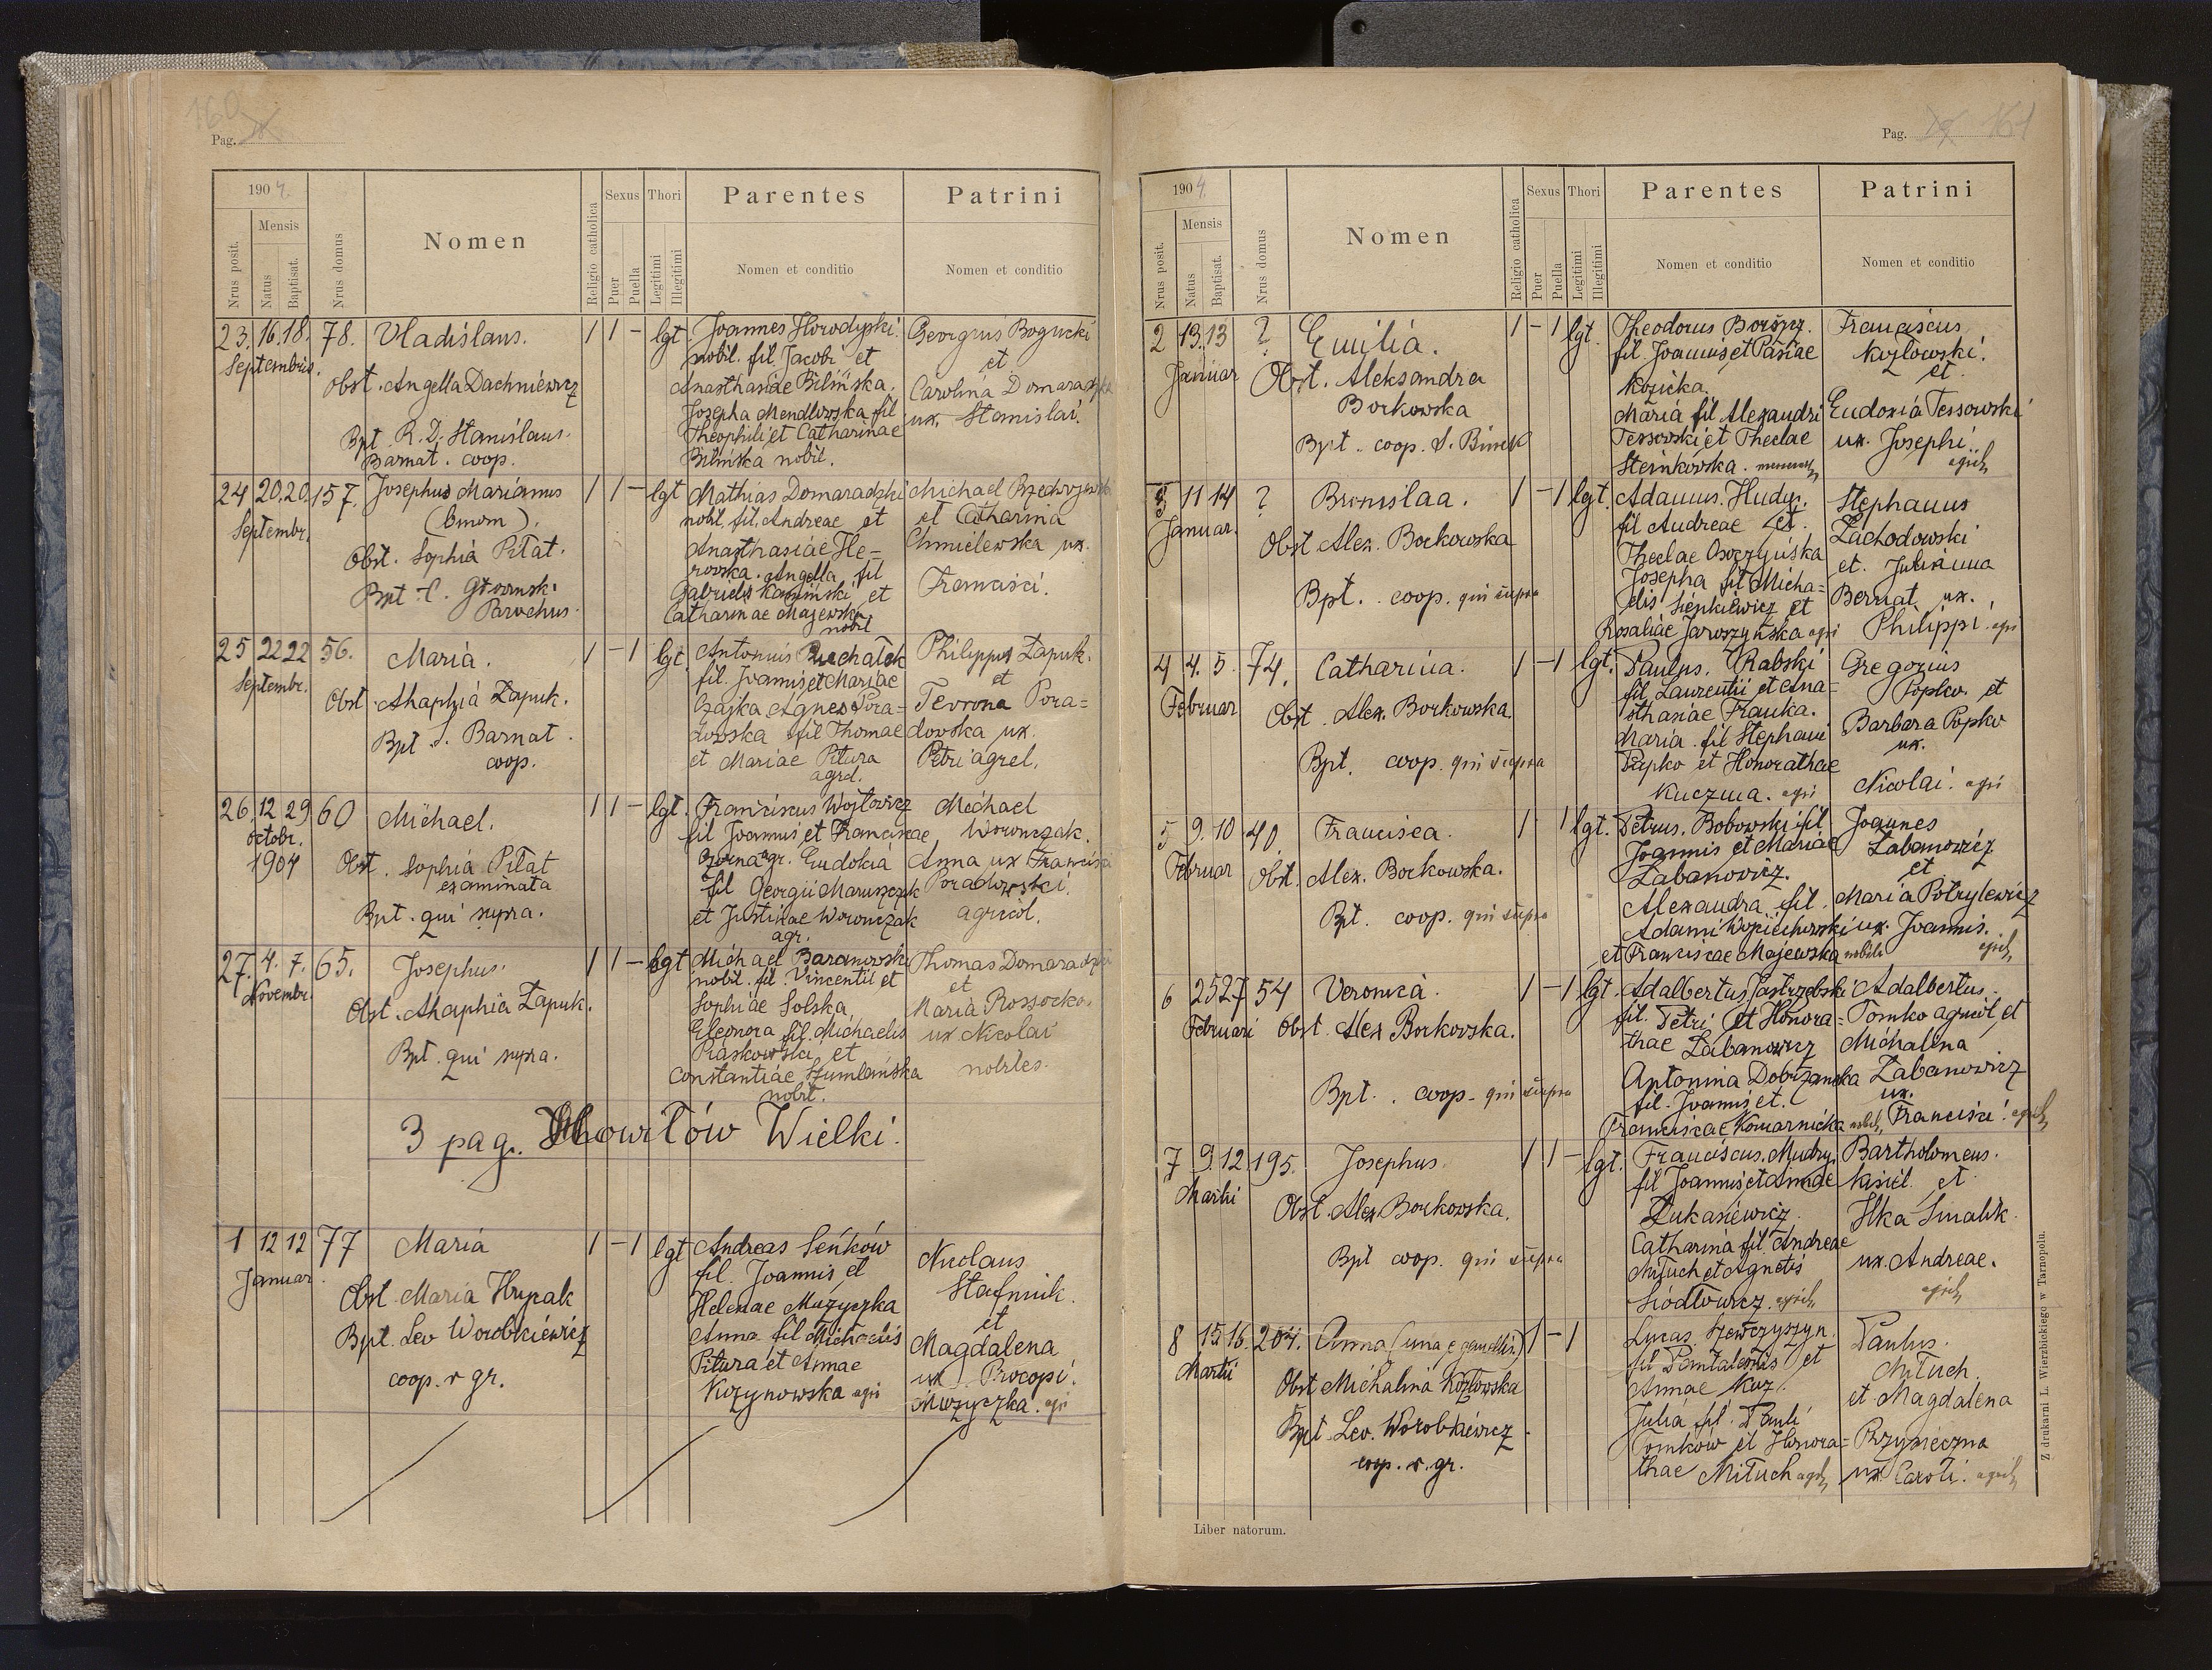 160
Pag.
1904.
Nrus posit.
Mensis
Natus
Baptisat.
Nrus domus
Nomen
Religio catholica
Sexus
Puer
Puella
Thori
Legitimi
Illegitimi
Parentes
Nomen et conditio
Patrini
Nomen et conditio
23. 16. 18. 78. Vladislaus. 1 1 - lgt.
Septembris.
Obst. Angella Dachniewicz
Bpt. R. D. Stanislaus.
Barnat. coop.
Joannes Horodyski
nobil. fil. Jacobi et
Anasthasiae Bilińska.
Josepha Mendlowska fil
Theophili et Catharinae
Bilińska nobil.
Georgius Bogucki
et
Carolina Domaradzka
ux. Stanislai.
24 20. 20. 157. Josephus Marianus 1 1 - lgt
Septembr.
Obst. Sophia Piłat.
Bpt C.
Parochus.
Mathias Domaradzki
nobil. fil. Andreae et
Anasthasiae He=
rowska. Angella fil
Gabrielis Kamiński et
Catharinae Majewski
nobil
Michael
et Catharina
Chmielewska ux.
Francisci.
25 22 22 56. Maria. 1 - 1 lgt.
Septembr.
Obst. Ahaphia Łapuk.
Bpt S. Barnat.
coop.
Antonius
fil. Joannis et Mariae
Czajka Agnes Pora=
dowska fil Thomae
et Mariae Pitura
agrel.
Philippus Łapuk.
et
Tevrona Pora=
dowska ux.
Petri agrel.
26. 12 29 60 Michael. 1 1 - lgt.
octobr.
1904
Obst. Sophia Piłat
examinata
Bpt. qui supra.
Franciscus Wojtowicz
fil Joannis et Franciscae
agr. Eudokia
fil Georgii Maruszczak
et Justinae Woronczak
agr.
Michael
Woronczak.
Anna ux Francisci
Poradowski.
agricol.
27. 4. 7. 65. Josephus. 1 1 - lgt
Novembr.
Obst. Ahaphia Łapuk.
Bpt. qui supra.
Michael Baranowski
nobil. fil. Vincentii et
Sophiae Solska,
Eleonora fil. Michaelis
Piaskowski et
Constantiae Szumlańska
nobil.
Thomas Domaradzki
et
Maria Rossocka
ux Nicolai
nobiles.
3 pag. Chowiłów Wielki.
1 12 12 77 Maria 1 - 1 lgt
Januar.
Obst. Maria Hrycak
Bpt. Leo Worobkiewicz
coop. r gr.
Andreas Seńków
fil. Joannis et
Helenae Muzyczka
Anna fil Michaelis
Pitura et Annae
Kozynowska agri
Nicolaus
Stafniuk.
et
Magdalena
ux. Procopi.
Muzyczka. agri
Pag. 161
1904.
Nrus posit.
Mensis
Natus
Baptisat.
Nrus domus
Nomen
Religio catholica
Sexus
Puer
Puella
Thori
Legitimi
Illegitimi
Parentes
Nomen et conditio
Patrini
Nomen et conditio
2 13. 13 ? Emilia. 1 - 1 lgt.
Januar
Obst. Aleksandra
Borkowska
Bpt. coop. S.
Theodorus
fil. Joannis et Pasiae
Kozicka.
Maria fil. Alexandri
Tessowski et Theclae
Steńkowska.
Franciscus
Kozłowski.
et
Eudoxia Tessowski
ux. Josephi
3 11 14 ? Bronislaa. 1 - 1 lgt.
Januar.
Obst Alex. Borkowska
Bpt. coop. qui supra
Adamus. Hudyc
fil Andreae et.
Theclae
Josepha fil Micha=
elis Sieńkiewicz et
Rosaliae Jaroszyńska agri
Stephanus
Zachodowski
et. Julianna
Bernat ux.
Philippi. agri
4 4. 5. 74. Catharina. 1 - 1 lgt.
Februar
Obst. Alex. Borkowska
Bpt. coop. qui supra
Paulus. Rabski
fil. Laurentii et Ana=
sthasiae Franka.
Maria fil Stephani
Papko et Honorathae
Kuczma. agri
Gregorius
Popko. et
Barbara Popko
ux.
Nicolai. agri
5 9. 10 40. Francisca. 1 1 lgt.
Februar
Obst. Alex. Borkowska.
Bpt. coop. qui supra
Petrus. Bobowski fil
Joannis et Mariae
Łabanowicz.
Alexandra fil.
Adami Wojciechowski
et Franciscae Majewska nobiles
Joannes
Łabanowicz
et
Maria Potrylewicz
ux. Joannis.
6 25 27 54 Veronica. 1 - 1 lgt.
Februari
Obst. Alex Borkowska.
Bpt. coop. qui supra
Adalbertus Jastrzębski
fil. Petri et Honora=
thae Łabanowicz
Antonina Dobrzańska
fil. Joannis et.
Franciscae Komarnicka
Adalbertus.
Tomko agricol et
Michalina
Łabanowicz
ux.
Francisci.
7 9. 12. 195. Josephus. 1 1 - lgt.
Martii
Obst. Alex. Borkowska.
Bpt coop. qui supra
Franciscus. Mudry
fil Joannis et Annae
Łukasiewicz.
Catharina fil Andreae
Mituch et Agnetis
Siodłowicz.
Bartholomeus.
Kisiel. et
Ilka Smalik.
ux. Andreae.
8 15 16. 204. Anna (una e gemellis.) 1 - 1
Martii
Obst Michalina Kozłowska
Bpt Leo. Worobkiewicz
coop. r. gr.
Lucas. Szewczyszyn.
fil Pantaleonis et
Annae Kuz.
Julia fil. Pauli
Tomków et Honora=
thae Mituch
Paulus.
Mituch
et Magdalena
ux Caroli.
Liber natorum.
Z drukarni L. Wierzbickiego w Tarnopolu.